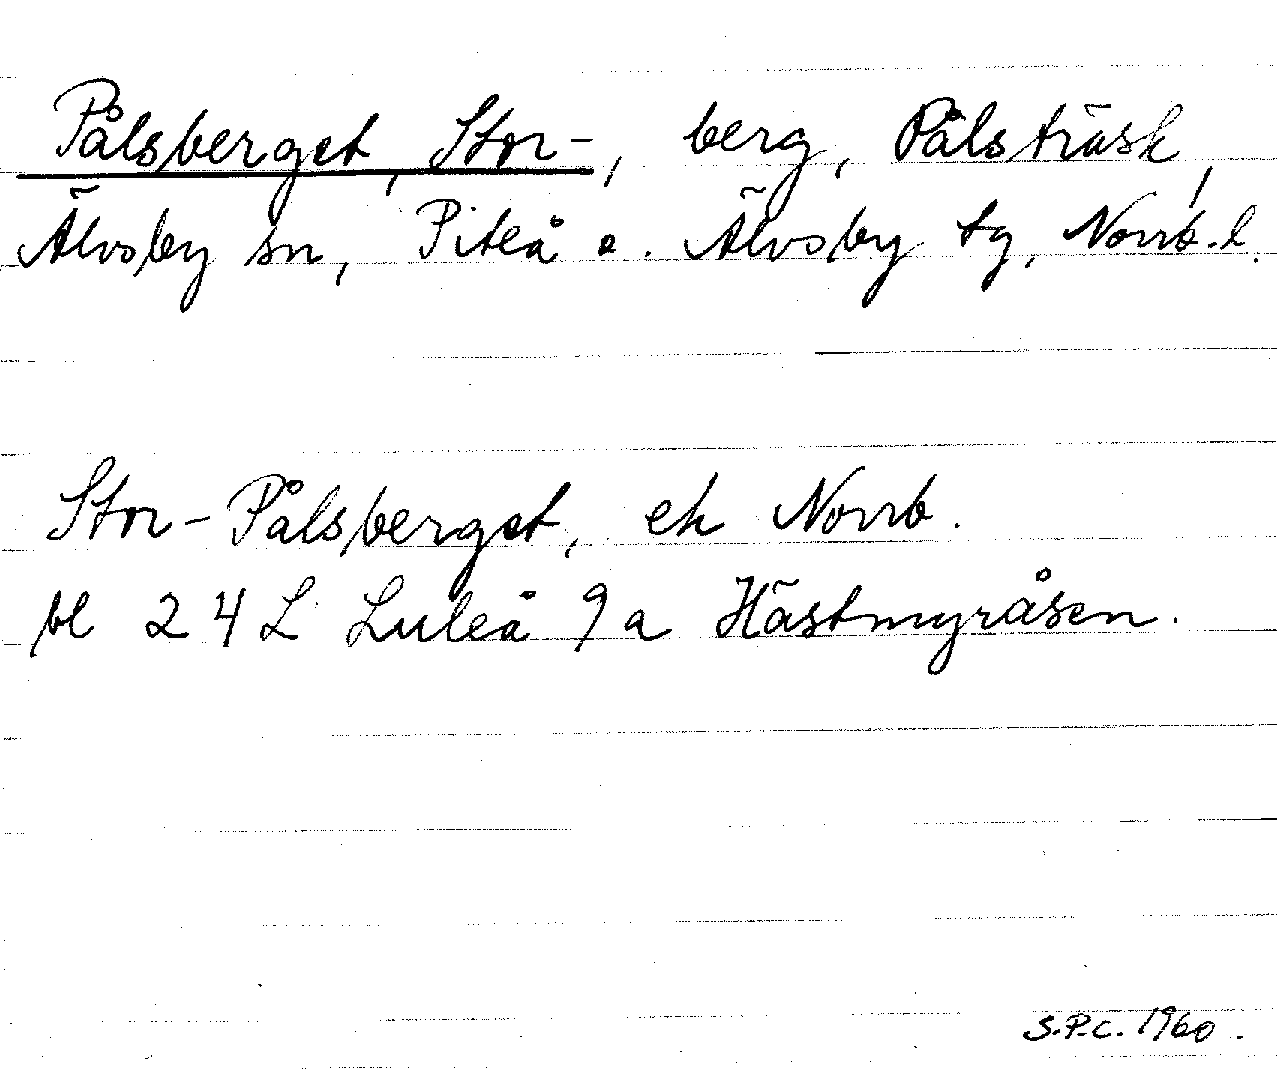 Pålsberget, Stor-, berg, Pålsträsk,
Älvsby sn, Piteå o. Älvsby tg, Norrb. l.
Stor-Pålsberget, ek Norrb.
bl 24 L Luleå 9 a Hästmyråsen.
S.P.C. 1960.